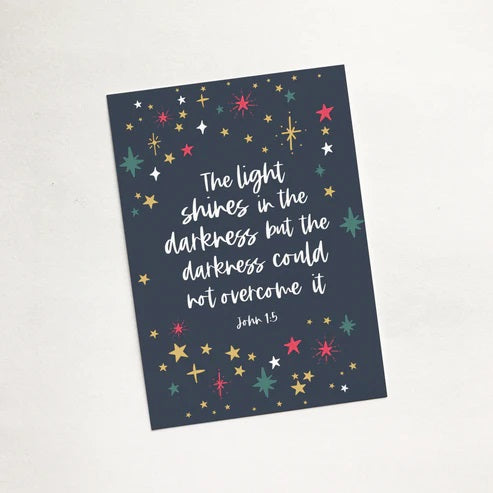 The light
shines in the
darkness but the
darkness could
not overcome it
John 1:5